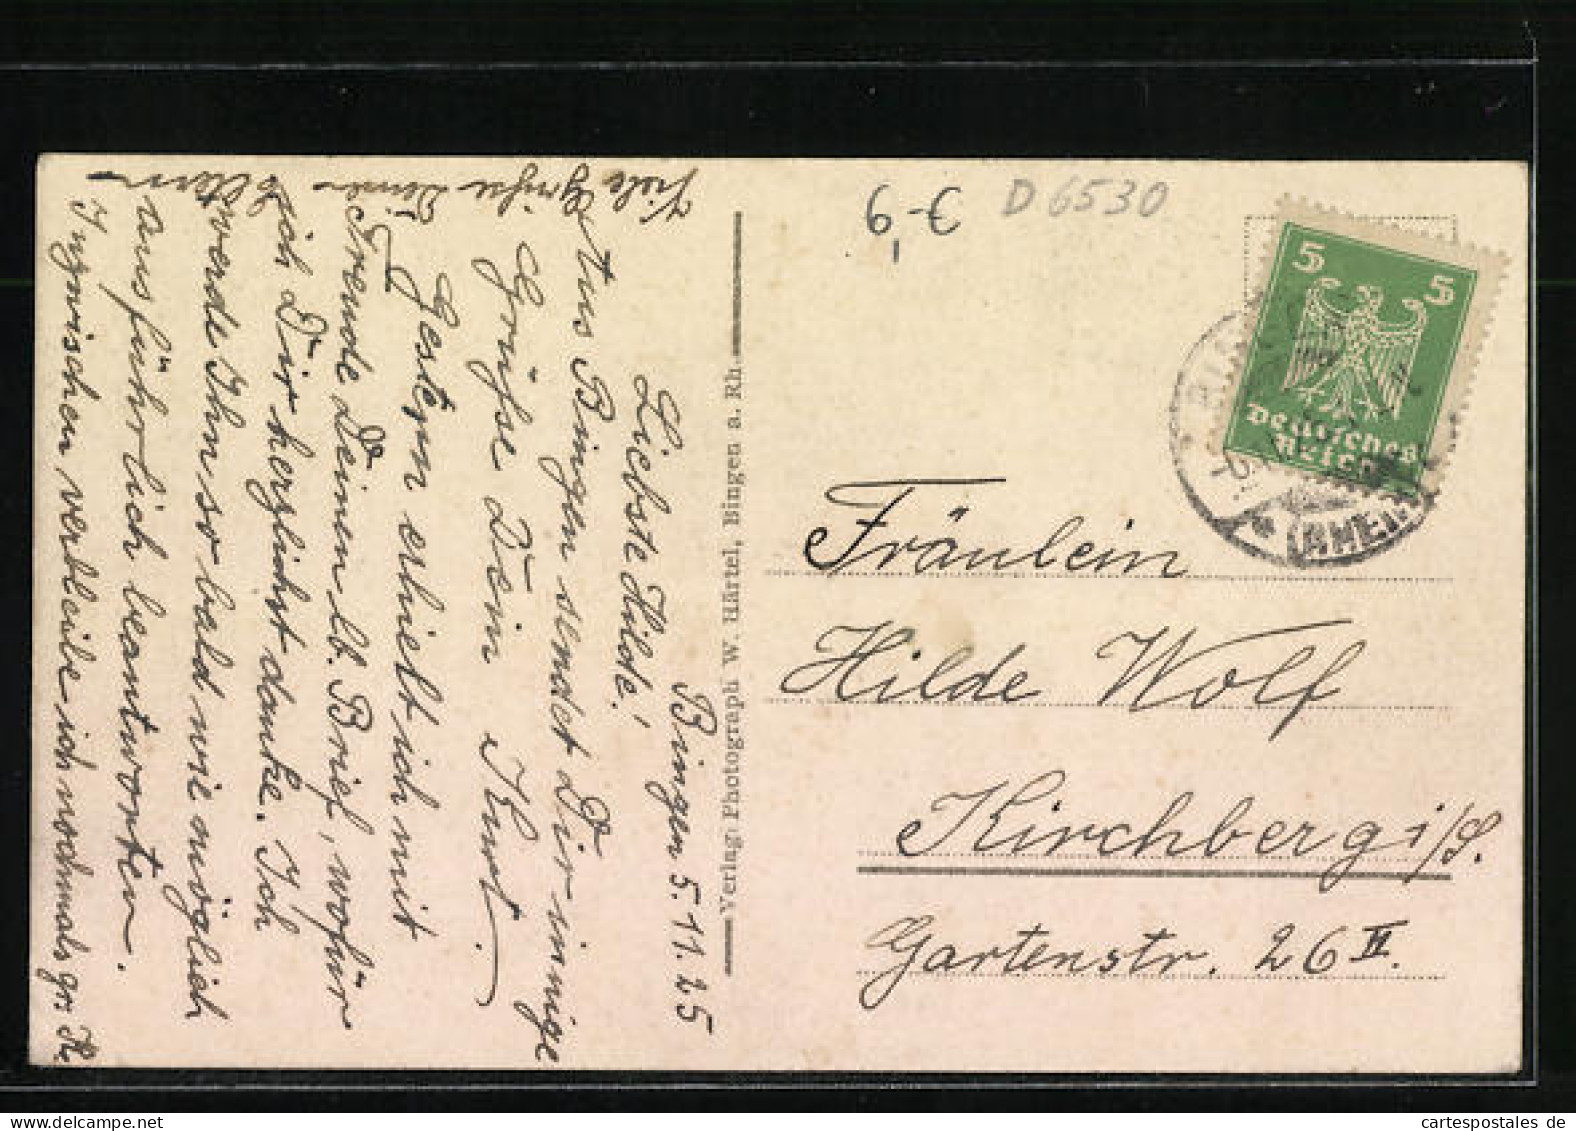 Bingen 5.11.25
Liebste Hilde!
Aus Bingen sendet Dir innige
Grüße Dein Kurt.
Gestern erhielt ich mit
Freude Deinen lb. Brief, wofür
ich Dir herzlichst danke. Ich
werde Ihn so bald wie möglich
ausführlich beantworten.
Inzwischen verbleibe ich nochmals gr. K.
Viele Grüße Deinen
Eltern
Verlag: Photograph W. Härtel, Bingen a. Rh.
D 6530
5 5
Deutsches
Reich
(RHEIN
Fräulein
Hilde Wolf
Kirchberg i/S.
Gartenstr. 26 II.
cartespostales de
www.delcampe.net